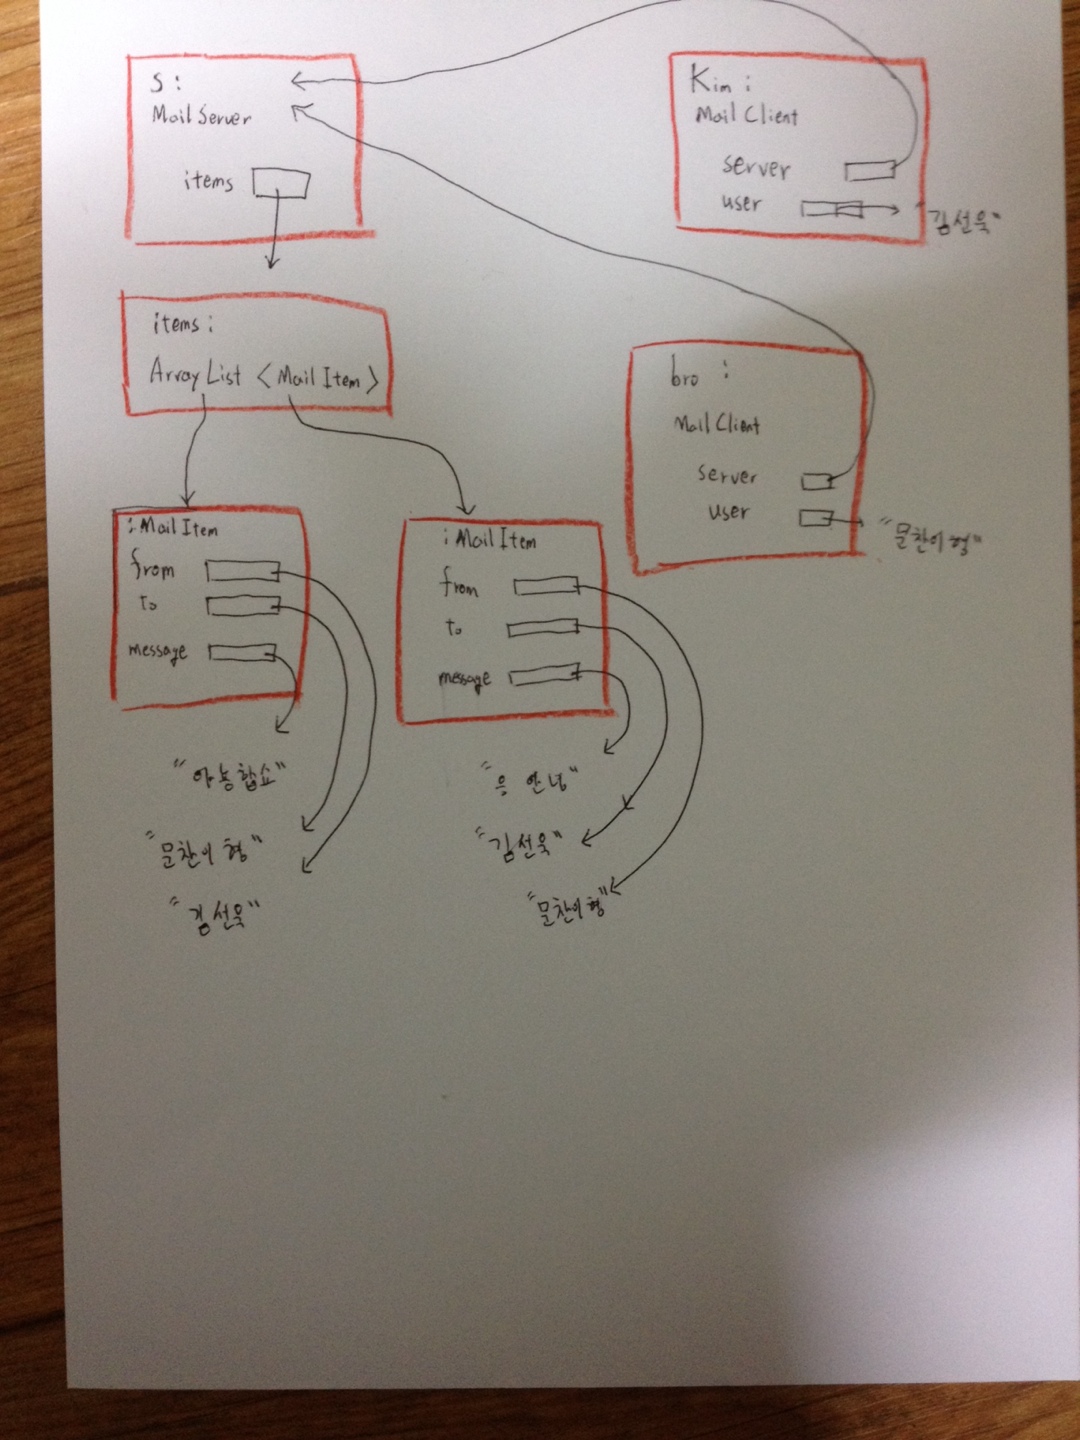 S :
Mail Server
items
Kim :
Mail Client
server
user
"김선욱"
items :
Array List <Mail Item>
bro :
Mail Client
server
user
"문찬이형"
: Mail Item
from
to
message
"아농합쇼"
"문찬이 형"
"김선욱"
: Mail Item
from
to
message
"응 안녕"
"김선욱"
"문찬이형"